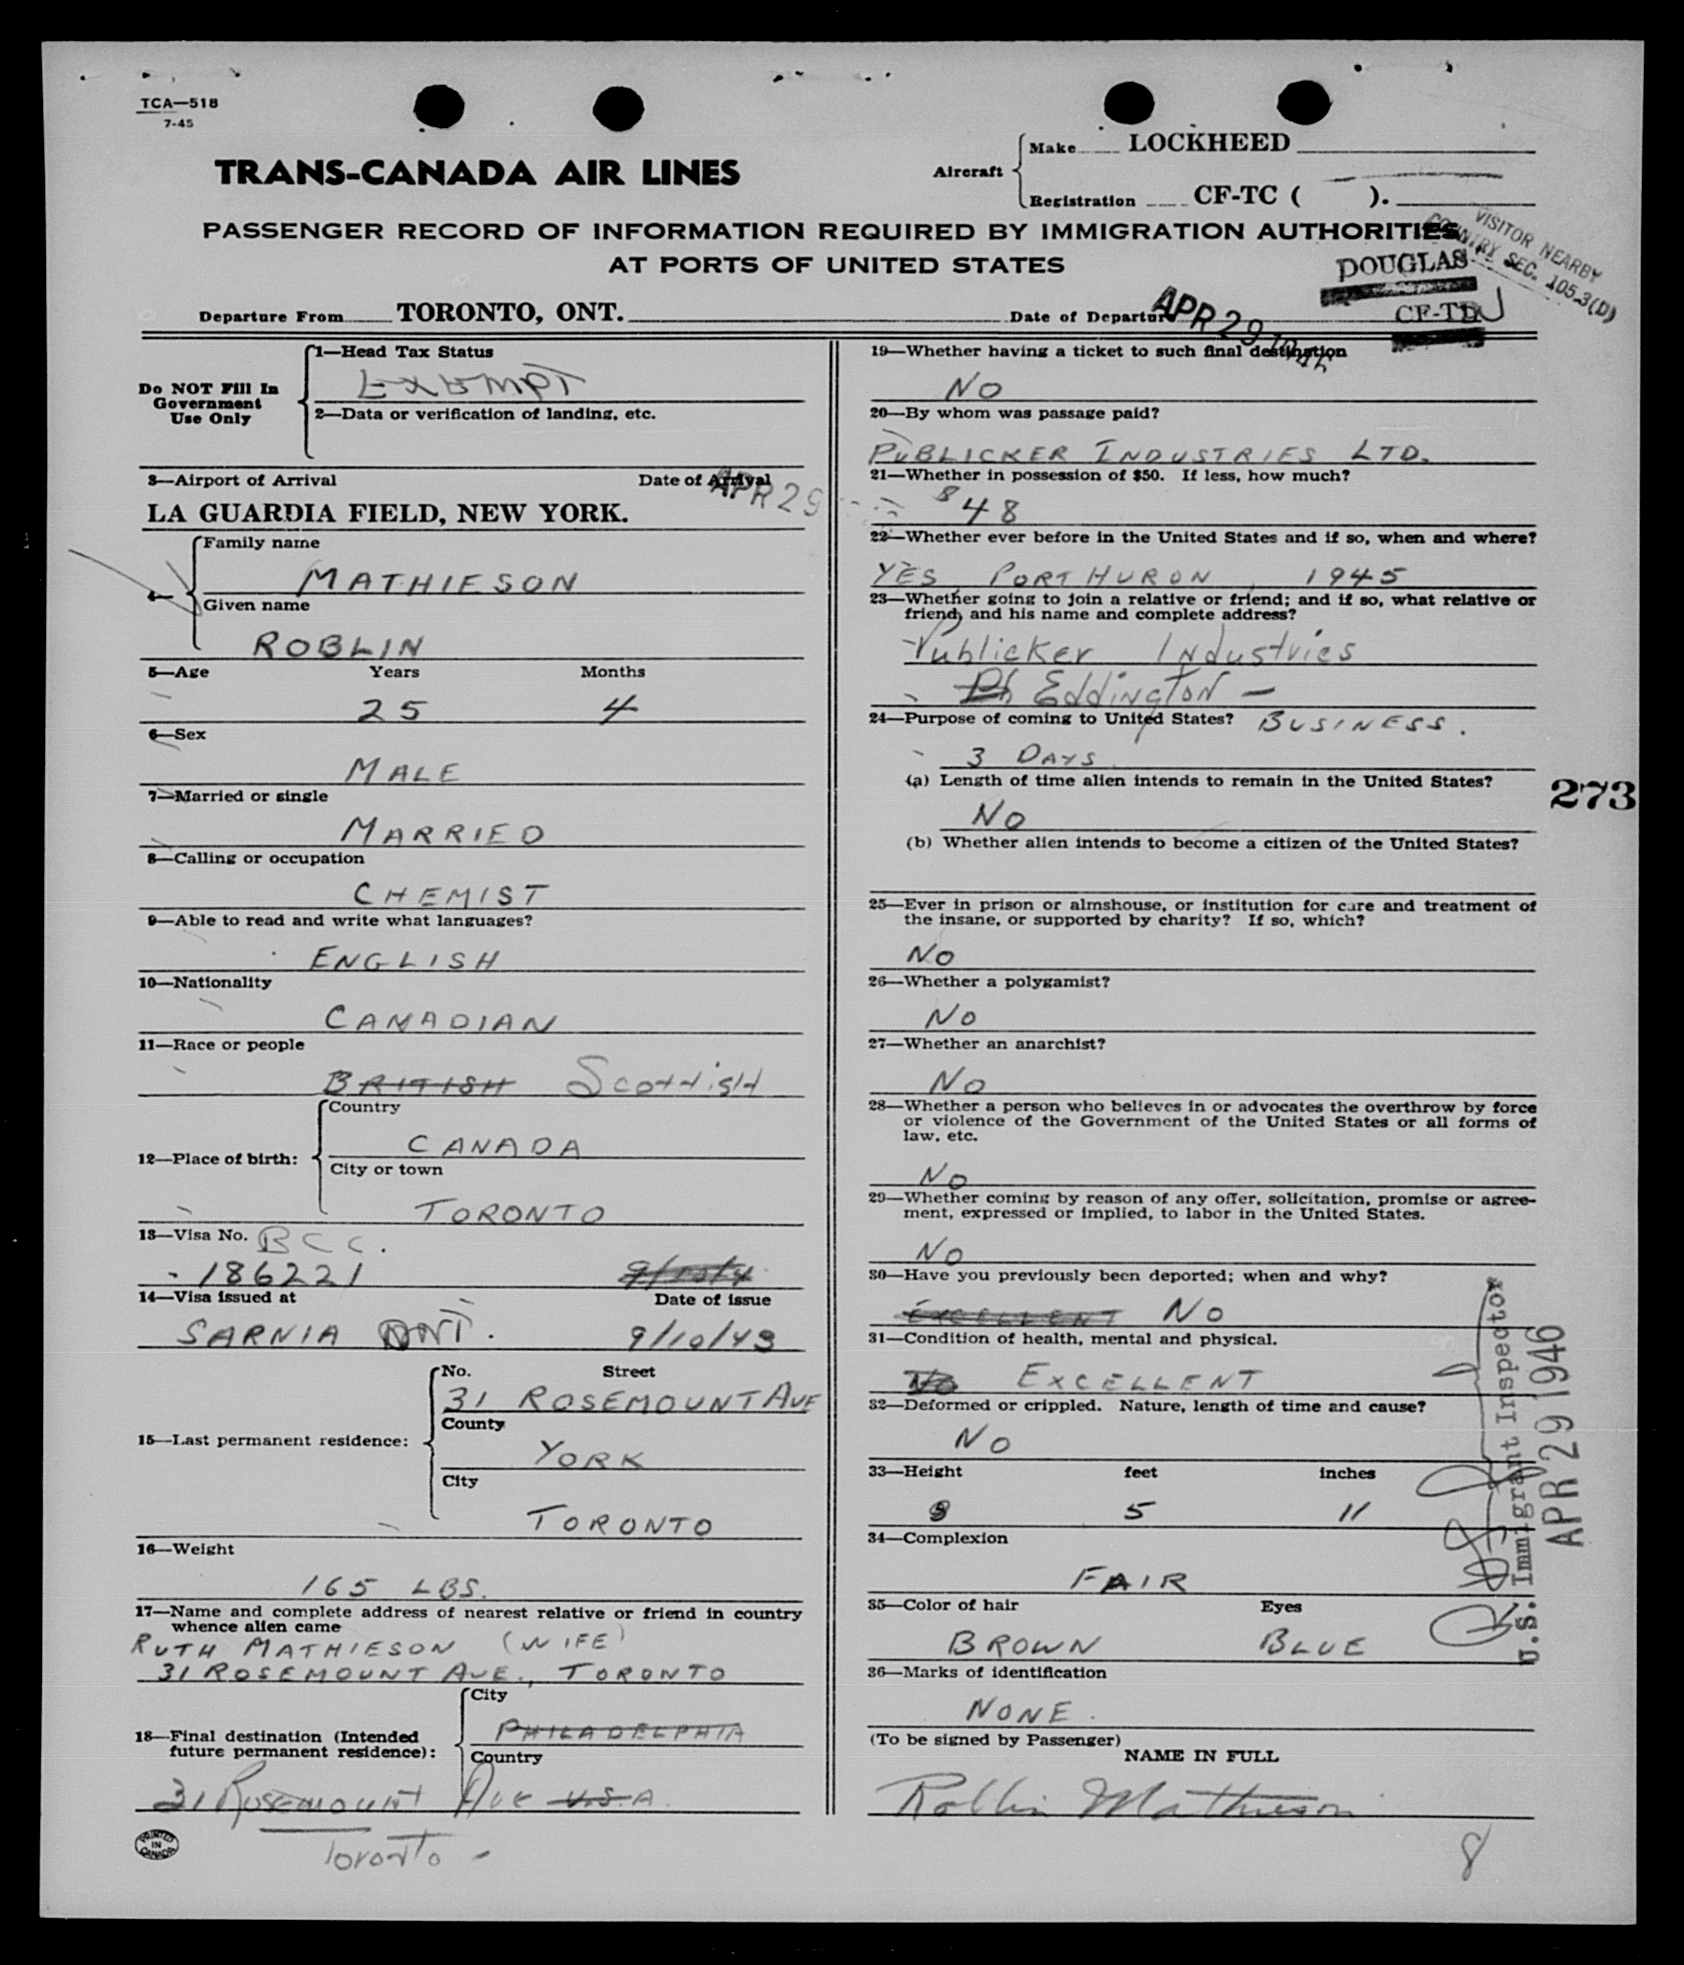 TCA—518
7-45
TRANS-CANADA AIR LINES
Aircraft
Make LOCKHEED
Registration CF-TC ( ).
PASSENGER RECORD OF INFORMATION REQUIRED BY IMMIGRATION AUTHORITIES
AT PORTS OF UNITED STATES
VISITOR NEARBY
COUNTRY SEC. 105.3(D)
DOUGLAS
CF-TDJ
Departure From TORONTO, ONT. Date of Departure APR 29 1946
Do NOT Fill In
Government
Use Only
1—Head Tax Status
EXEMPT
2—Data or verification of landing, etc.
3—Airport of Arrival Date of Arrival
LA GUARDIA FIELD, NEW YORK. APR 29
4—
Family name
MATHIESON
Given name
ROBLIN
5—Age Years Months
25 4
6—Sex
MALE
7—Married or single
MARRIED
8—Calling or occupation
CHEMIST
9—Able to read and write what languages?
ENGLISH
10—Nationality
CANADIAN
11—Race or people
BRITISH Scottish
12—Place of birth:
Country
CANADA
City or town
TORONTO
13—Visa No. BCC.
186221
14—Visa issued at Date of issue
SARNIA ONT. 9/10/43
15—Last permanent residence:
No. Street
31 ROSEMOUNT AVE
County
YORK
City
TORONTO
16—Weight
165 LBS.
17—Name and complete address of nearest relative or friend in country
whence alien came
RUTH MATHIESON (WIFE)
31 ROSEMOUNT AVE., TORONTO
18—Final destination (Intended
future permanent residence):
City
PHILADELPHIA
Country
31 Rosemount Ave U.S.A.
Toronto -
PRINTED
IN
CANADA
19—Whether having a ticket to such final destination
NO
20—By whom was passage paid?
PUBLICKER INDUSTRIES LTD.
21—Whether in possession of $50. If less, how much?
$48
22—Whether ever before in the United States and if so, when and where?
YES PORT HURON, 1945
23—Whether going to join a relative or friend; and if so, what relative or
friend, and his name and complete address?
Publicker Industries
Ph Eddington —
24—Purpose of coming to United States? BUSINESS.
3 DAYS
(a) Length of time alien intends to remain in the United States?
NO
(b) Whether alien intends to become a citizen of the United States?
25—Ever in prison or almshouse, or institution for care and treatment of
the insane, or supported by charity? If so, which?
NO
26—Whether a polygamist?
NO
27—Whether an anarchist?
NO
28—Whether a person who believes in or advocates the overthrow by force
or violence of the Government of the United States or all forms of
law, etc.
NO
29—Whether coming by reason of any offer, solicitation, promise or agree-
ment, expressed or implied, to labor in the United States.
NO
30—Have you previously been deported; when and why?
EXCELLENT NO
31—Condition of health, mental and physical.
NO EXCELLENT
32—Deformed or crippled. Nature, length of time and cause?
NO
33—Height feet inches
5 11
34—Complexion
FAIR
35—Color of hair Eyes
BROWN BLUE
36—Marks of identification
NONE.
(To be signed by Passenger)
NAME IN FULL
Roblin Mathieson
8
273
U.S. Immigrant Inspector
APR 29 1946